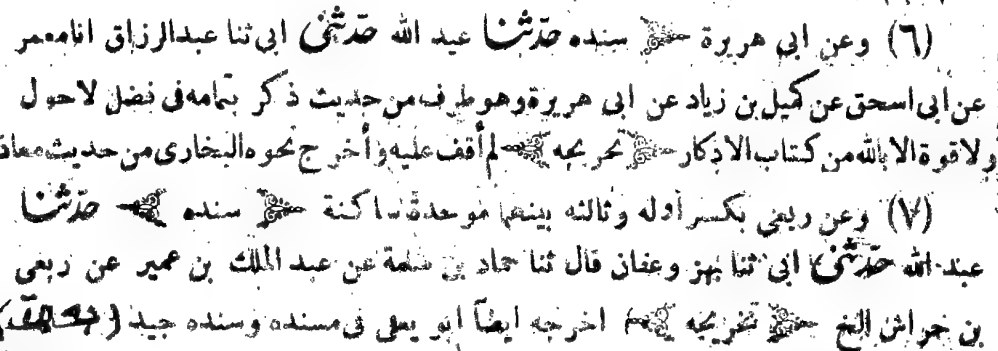 (٦) وعن ابى هريرة ﴿ سنده حدّثنا عبد الله حدّثنى ابى ثنا عبد الرزاق انا معمر
عن ابى اسحق عن كميل بن زياد عن ابى هريرة وهو طرف من حديث ذكر بتمامه فى فضل لا حول
ولا قوة الا بالله من كتاب الاذكار ﴿ تخريجه ﴾ لم أقف عليه وأخرج نحوه البخارى من حديث معاذ
(٧) وعن ربعى بكسر أوله وثالثه بينهما موحدة ساكنة ﴿ سنده ﴾ حدّثنا
عبد الله حدّثنى ابى ثنا بهز وعفان قال ثنا حماد بن سلمة عن عبد الملك بن عمير عن ربعى
بن خراش الخ ﴿ تخريجه ﴾ اخرجه ايضاً ابو يعلى فى مسنده وسنده جيد (